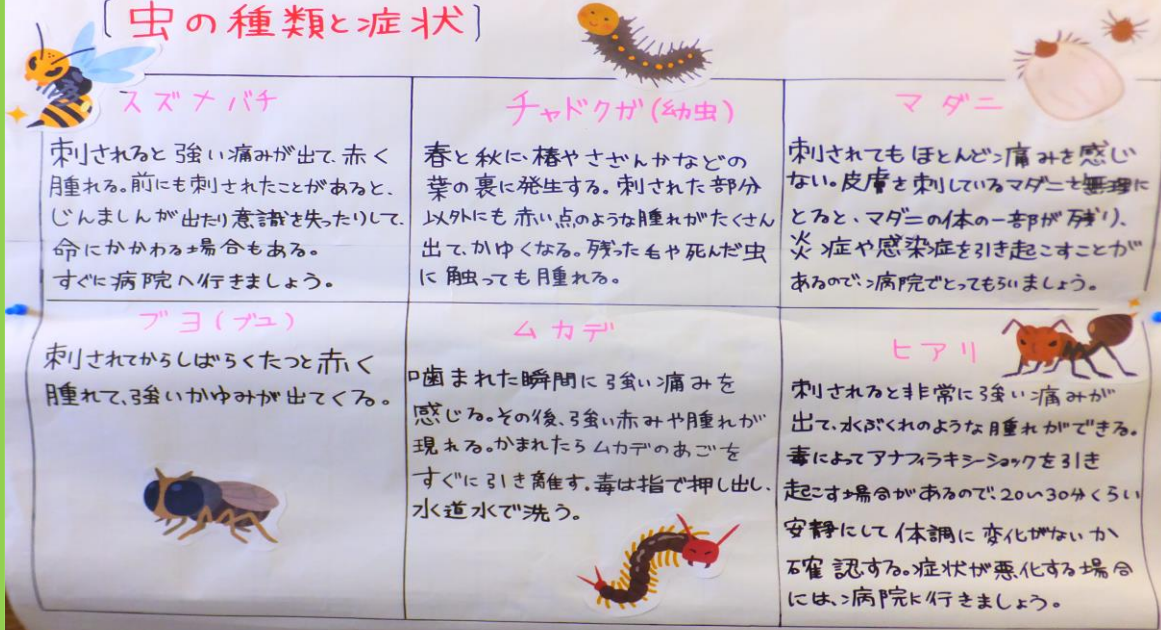 [虫の種類と症状]
スズメバチ
刺されると強い痛みが出て、赤く
腫れる。前にも刺されたことがあると、
じんましんが出たり意識を失ったりして、
命にかかわる場合もある。
すぐに病院へ行きましょう。
チャドクガ(幼虫)
春と秋に、椿やさざんかなどの
葉の裏に発生する。刺された部分
以外にも赤い点のような腫れがたくさん
出て、かゆくなる。残った毛や死んだ虫
に触っても腫れる。
マダニ
刺されてもほとんど痛みを感じ
ない。皮膚を刺しているマダニを無理に
とると、マダニの体の一部が残り、
炎症や感染症を引き起こすことが
あるので、病院でとってもらいましょう。
ブヨ(ブユ)
刺されてからしばらくたつと赤く
腫れて、強いかゆみが出てくる。
ムカデ
噛まれた瞬間に強い痛みを
感じる。その後、強い赤みや腫れが
現れる。かまれたらムカデのあごを
すぐに引き離す。毒は指で押し出し、
水道水で洗う。
ヒアリ
刺されると非常に強い痛みが
出て、水ぶくれのような腫れができる。
毒によってアナフィラキシーショックを引き
起こす場合があるので、20〜30分くらい
安静にして体調に変化がないか
確認する。症状が悪化する場合
には、病院に行きましょう。